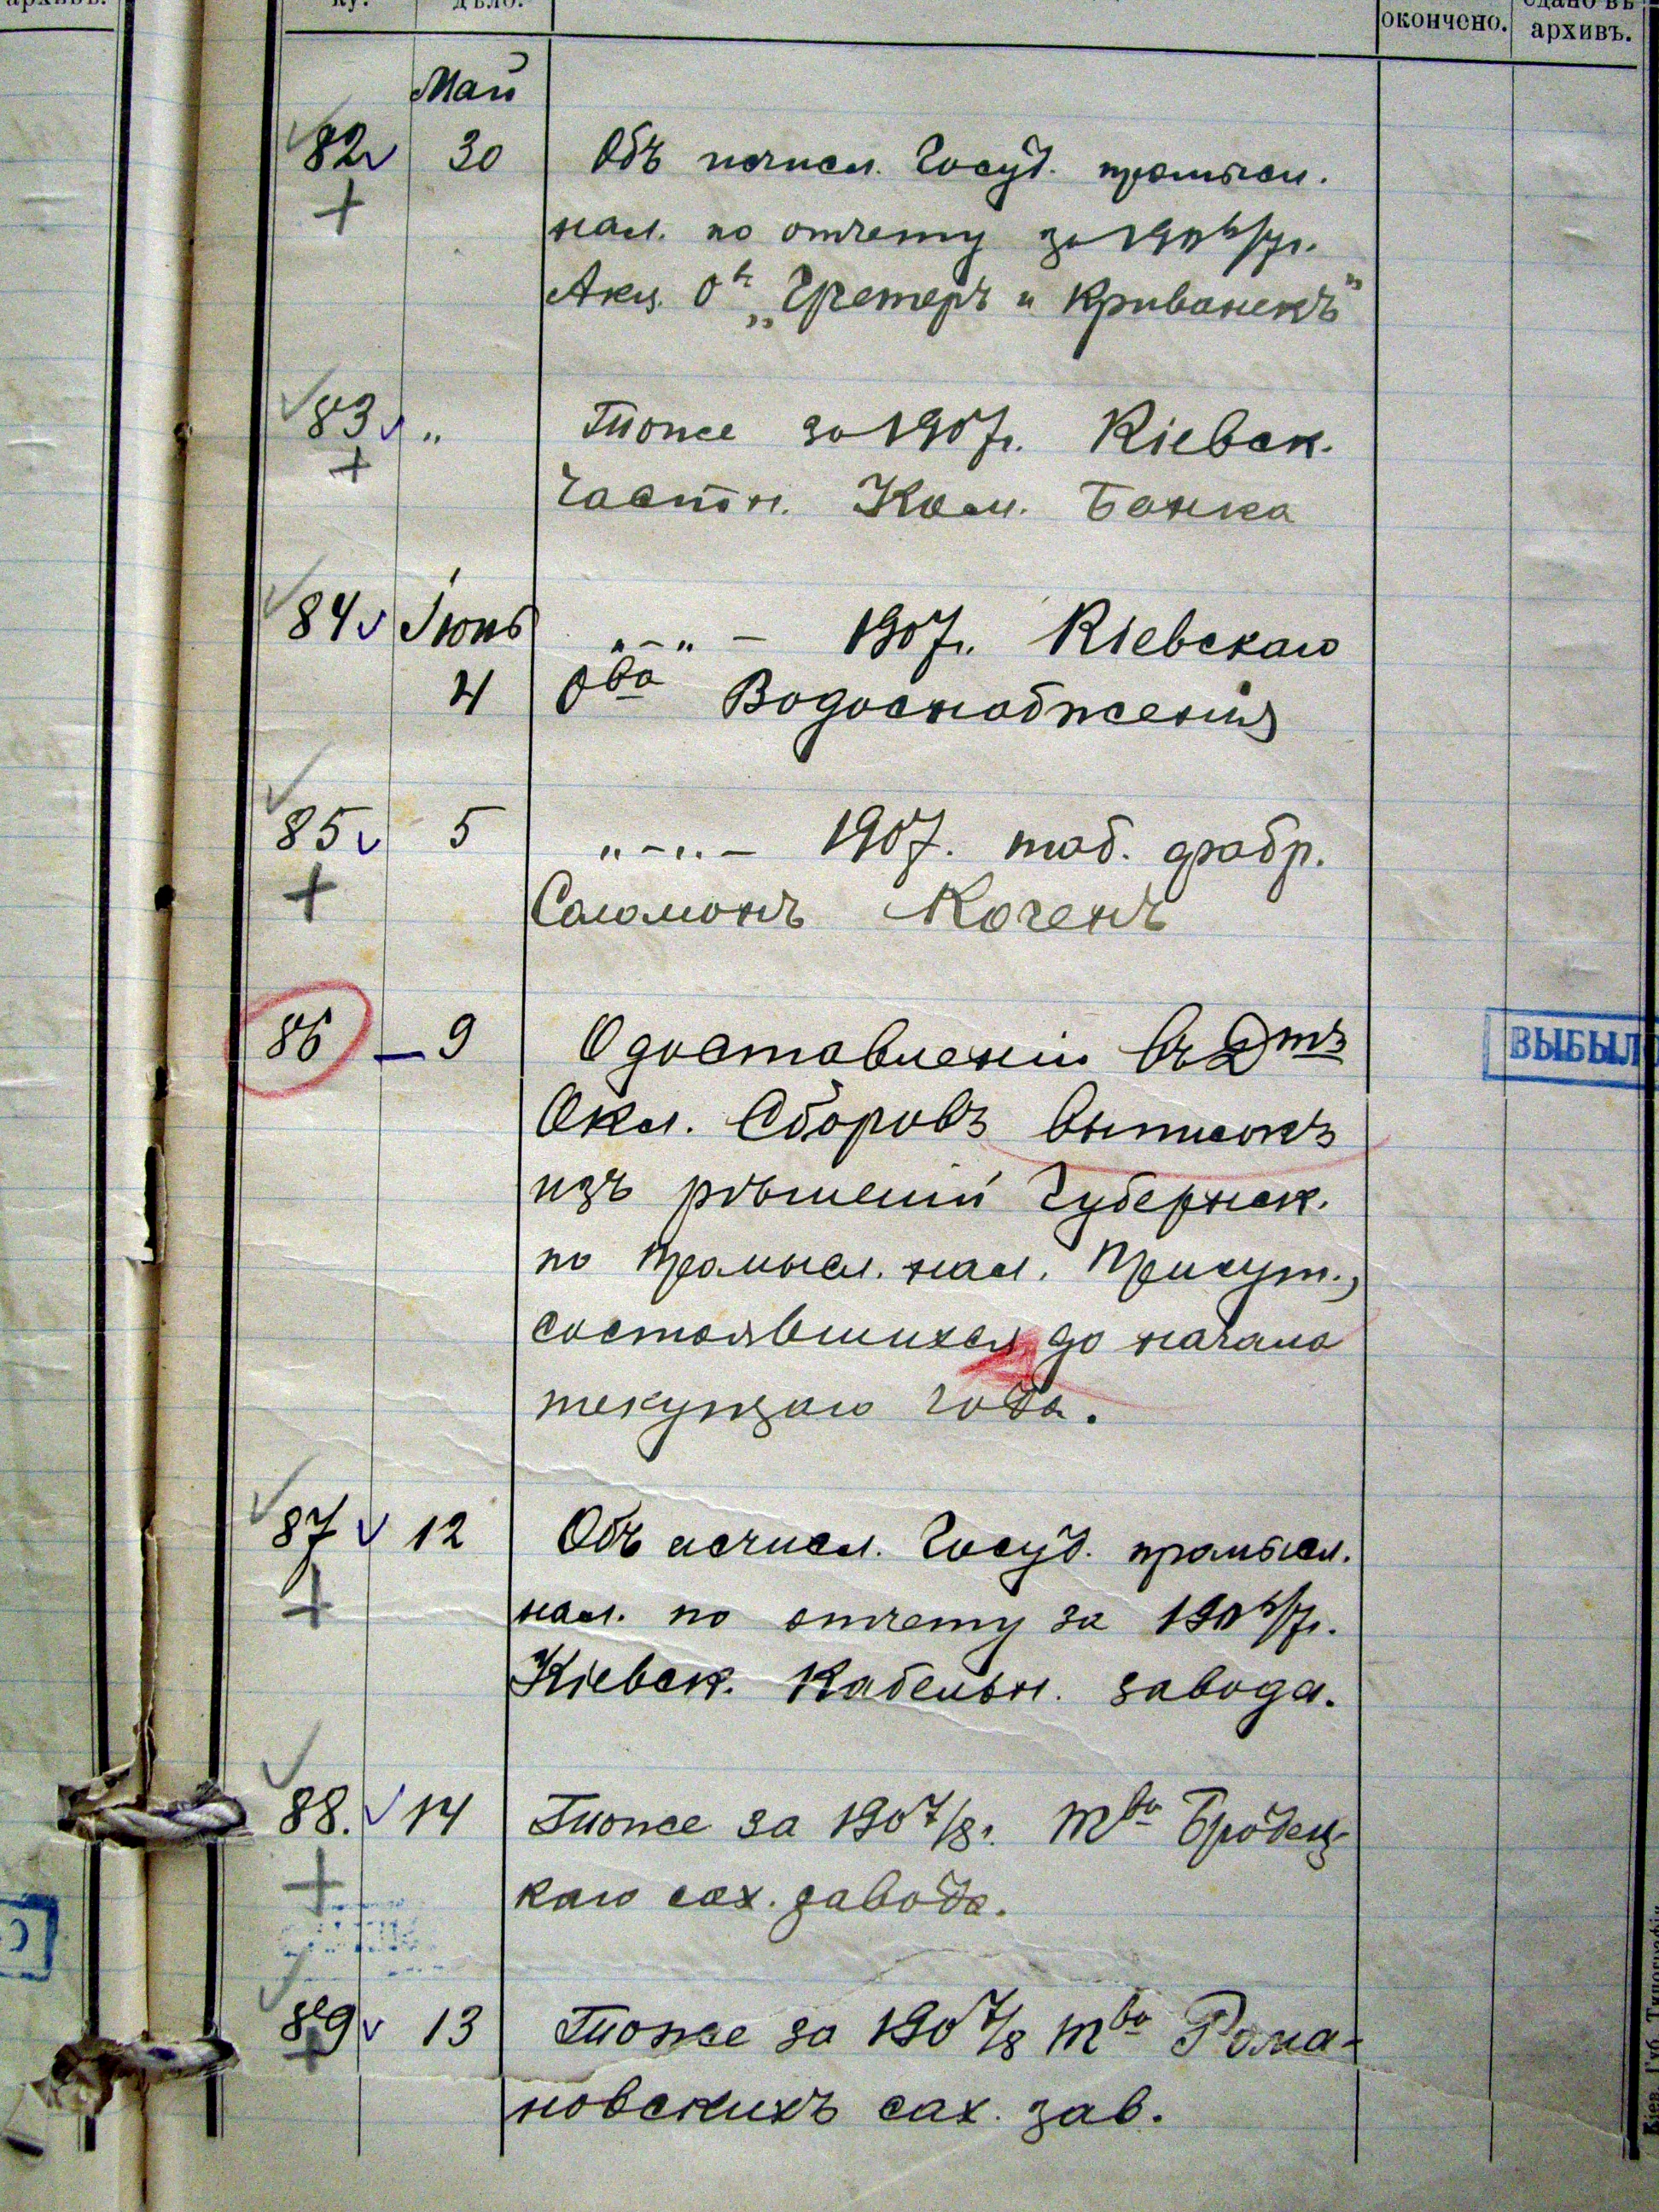 архивъ.
ку.
дѣло.
окончено.
сдано въ
архивъ.
Май
82 30 Объ исчисл. Госуд. промысл.
нал. по отчету за 1906/7г.
Акц. О-ва „Гретеръ и Криванекъ"
83 „ Тоже за 1907г. Кіевск.
Частн. Ком. Банка
84 Іюнь „-„- 1907г. Кіевскаго
4 О-ва Водоснабженія
85 5 „-„- 1907. таб. фабр.
Соломонъ Когенъ
86 - 9 О доставленіи въ Д-тъ
ВЫБЫЛО
Окл. Сборовъ выписокъ
изъ рѣшеній Губернск.
по промысл. нал. Присут.,
состоявшихся до начала
текущаго года.
87 12 Объ исчисл. Госуд. промысл.
нал. по отчету за 1906/7г.
Кіевск. Кабельн. завода.
88. 14 Тоже за 1907/8г. Т-ва Бродец-
каго сах. завода.
89 13 Тоже за 1907/8 Т-ва Рома-
новскихъ сах. зав.
Кіев. Губ. Типографія